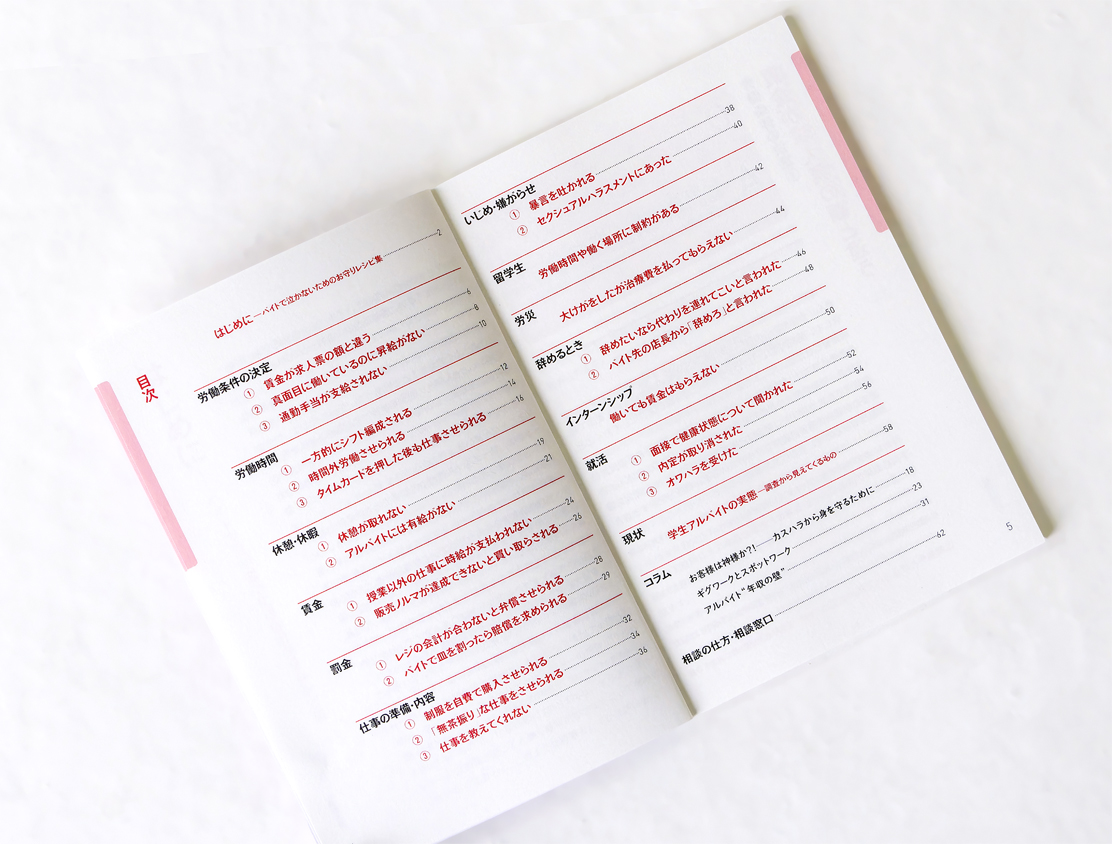 目次
はじめに ―バイトで泣かないためのお守りレシピ集 2
労働条件の決定
① 賃金が求人票の額と違う 6
② 真面目に働いているのに昇給がない 8
③ 通勤手当が支給されない 10
労働時間
① 一方的にシフト編成される 12
② 時間外労働させられる 14
③ タイムカードを押した後も仕事させられる 16
休憩・休暇
① 休憩が取れない 19
② アルバイトには有給がない 21
賃金
① 授業以外の仕事に時給が支払われない 24
② 販売ノルマが達成できないと買い取らされる 26
罰金
① レジの会計が合わないと弁償させられる 28
② バイトで皿を割ったら賠償を求められる 29
仕事の準備・内容
① 制服を自費で購入させられる 32
② 「無茶振り」な仕事をさせられる 34
③ 仕事を教えてくれない 36
いじめ・嫌がらせ
① 暴言を吐かれる 38
② セクシュアルハラスメントにあった 40
留学生
労働時間や働く場所に制約がある 42
労災
大けがをしたが治療費を払ってもらえない 44
辞めるとき
① 辞めたいなら代わりを連れてこいと言われた 46
② バイト先の店長から「辞めろ」と言われた 48
インターンシップ
働いても賃金はもらえない 50
就活
① 面接で健康状態について聞かれた 52
② 内定が取り消された 54
③ オワハラを受けた 56
現状
学生アルバイトの実態 ―調査から見えてくるもの 58
コラム
お客様は神様か?!――カスハラから身を守るために 18
ギグワークとスポットワーク 23
アルバイト“年収の壁” 31
相談の仕方・相談窓口 62
5